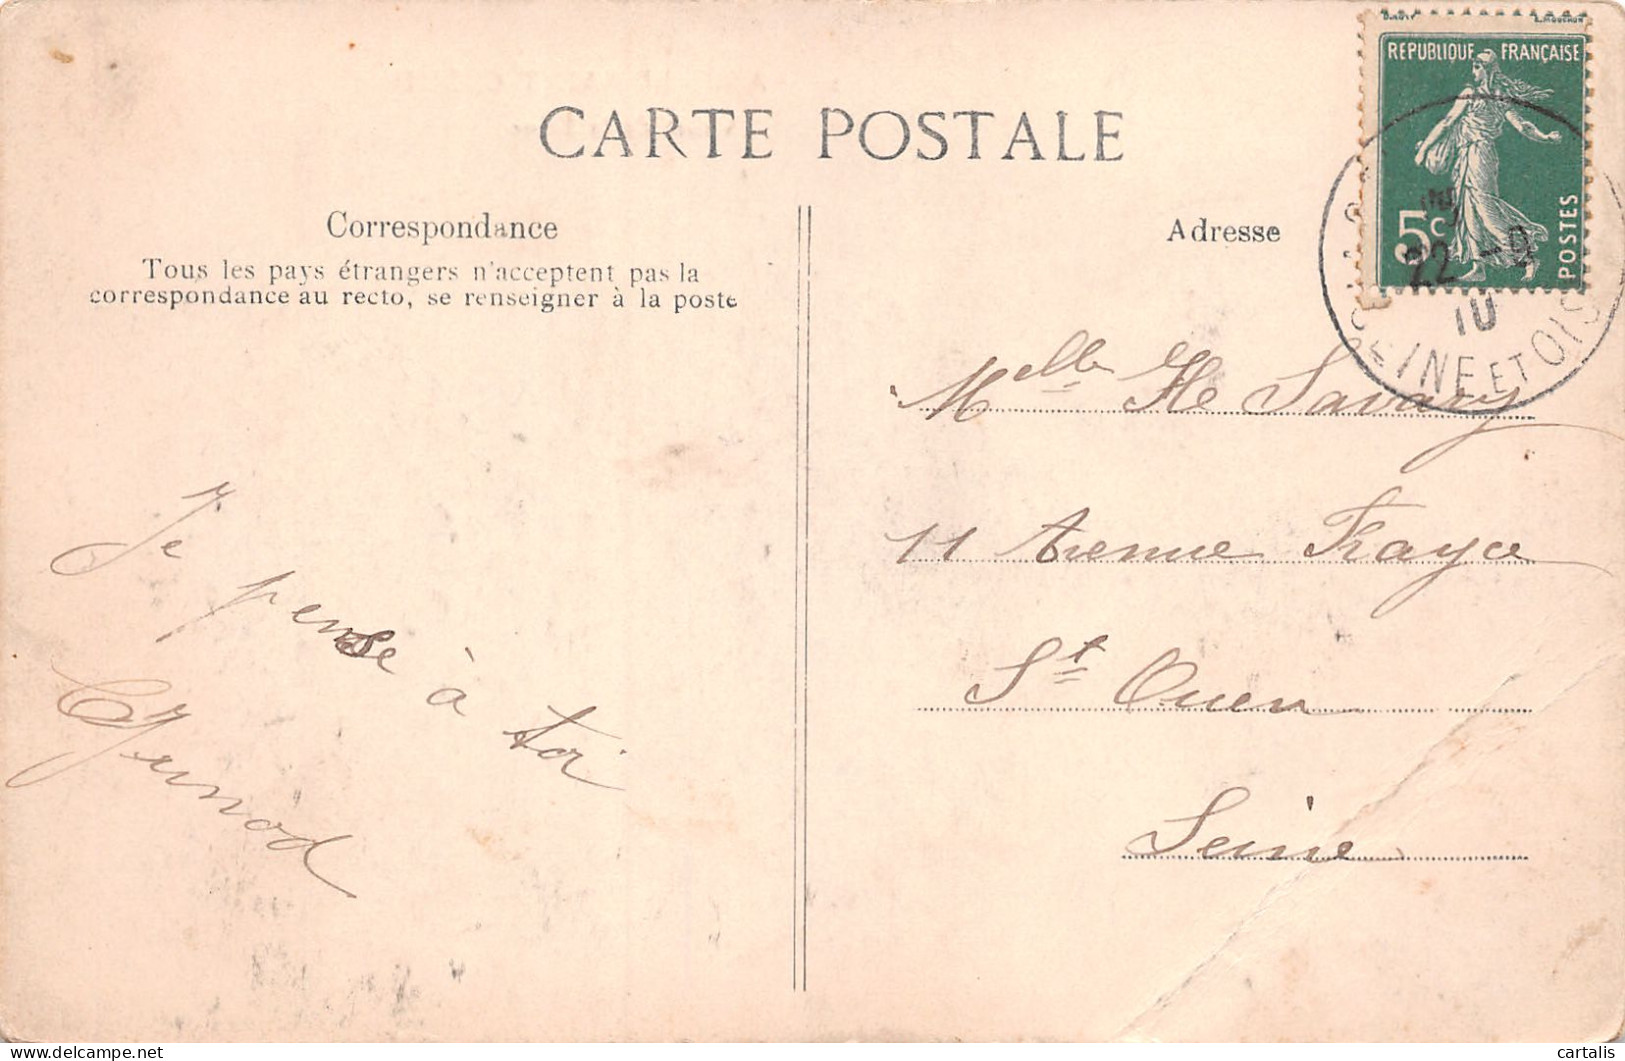 CARTE POSTALE
Correspondance
Tous les pays étrangers n'acceptent pas la
correspondance au recto, se renseigner à la poste
Je
pense à toi
Adresse
Melle He Savary
11 Avenue Trayce
St Ouen
Seine
REPUBLIQUE FRANÇAISE
5c
POSTES
22 - 9
10
SEINE ET OISE
cartalis